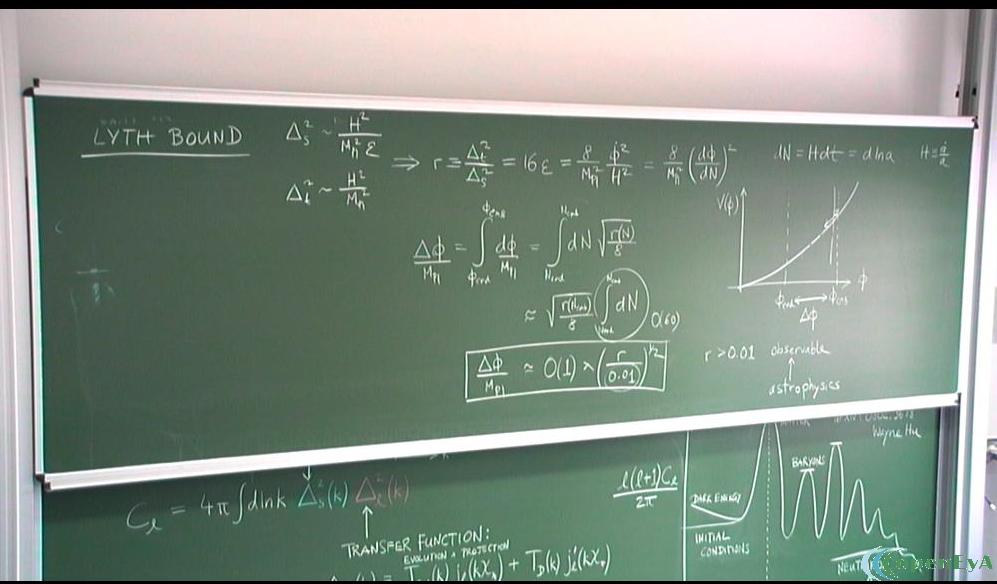 LYTH BOUND
Δ_s² ~ H² / (M_Pl² ε)
Δ_t² ~ H² / M_Pl²
⟹ r ≡ Δ_t² / Δ_s² = 16 ε = 8/M_Pl² φ̇²/H² = 8/M_Pl² (dφ/dN)²
dN = H dt = d ln a
H ≡ ȧ/a
Δφ/M_Pl = ∫_{φ_end}^{φ_cmb} dφ/M_Pl = ∫_{N_end}^{N_cmb} dN √(r(N)/8)
≈ √(r(N_cmb)/8) ∫_{N_end}^{N_cmb} dN
O(60)
Δφ/M_Pl ≈ O(1) × (r/0.01)^{1/2}
V(φ)
φ
φ_end ⟷ φ_cmb
Δφ
r > 0.01 observable
↑
astrophysics
C_ℓ = 4π ∫ dlnk Δ_s²(k) Δ_ℓ²(k)
TRANSFER FUNCTION:
EVOLUTION + PROJECTION
+ T_D(k) j_ℓ'(kχ_*)
ℓ(ℓ+1)C_ℓ / 2π
Wayne Hu
BARYONS
DARK ENERGY
INITIAL
CONDITIONS